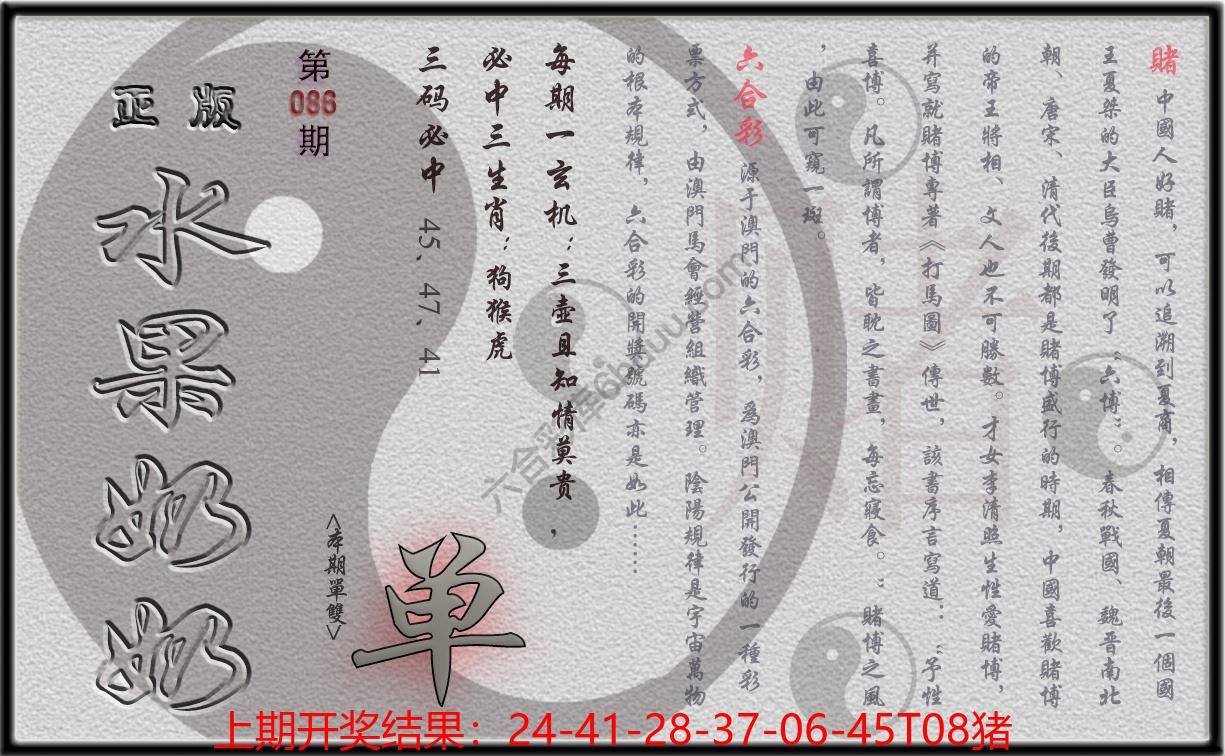 賭 中國人好賭，可以追溯到夏商，相傳夏朝最後一個國
王夏桀的大臣烏曹發明了“六博”。春秋戰國、魏晋南北
朝、唐宋、清代後期都是賭博盛行的時期，中國喜歡賭博
的帝王將相、文人也不可勝數。才女李清照生性愛賭博，
并寫就賭博專著《打馬圖》傳世，該書序言寫道：“予性
喜博。凡所謂博者，皆耽之書畫，每忘寢食。”賭博之風
，由此可窺一斑。
六合彩 源于澳門的六合彩，爲澳門公開發行的一種彩
票方式，由澳門馬會經營組織管理。陰陽規律是宇宙萬物
的根本規律，六合彩的開獎號碼亦是如此……
每期一玄机：三壶且知情莫贵，
必中三生肖：狗猴虎
三码必中 45、47、41
第
086
期
正版
水果奶奶
<本期單雙>
单
赌
上期开奖结果：24-41-28-37-06-45T08猪